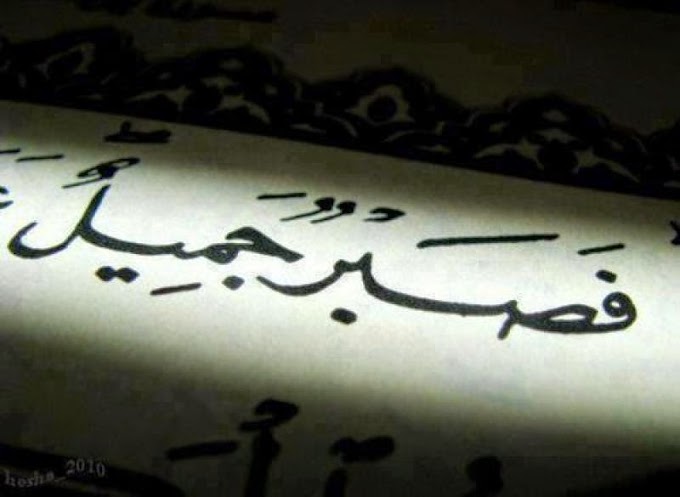 فَصَبْرٌ جَمِيلٌ
hesha_2010